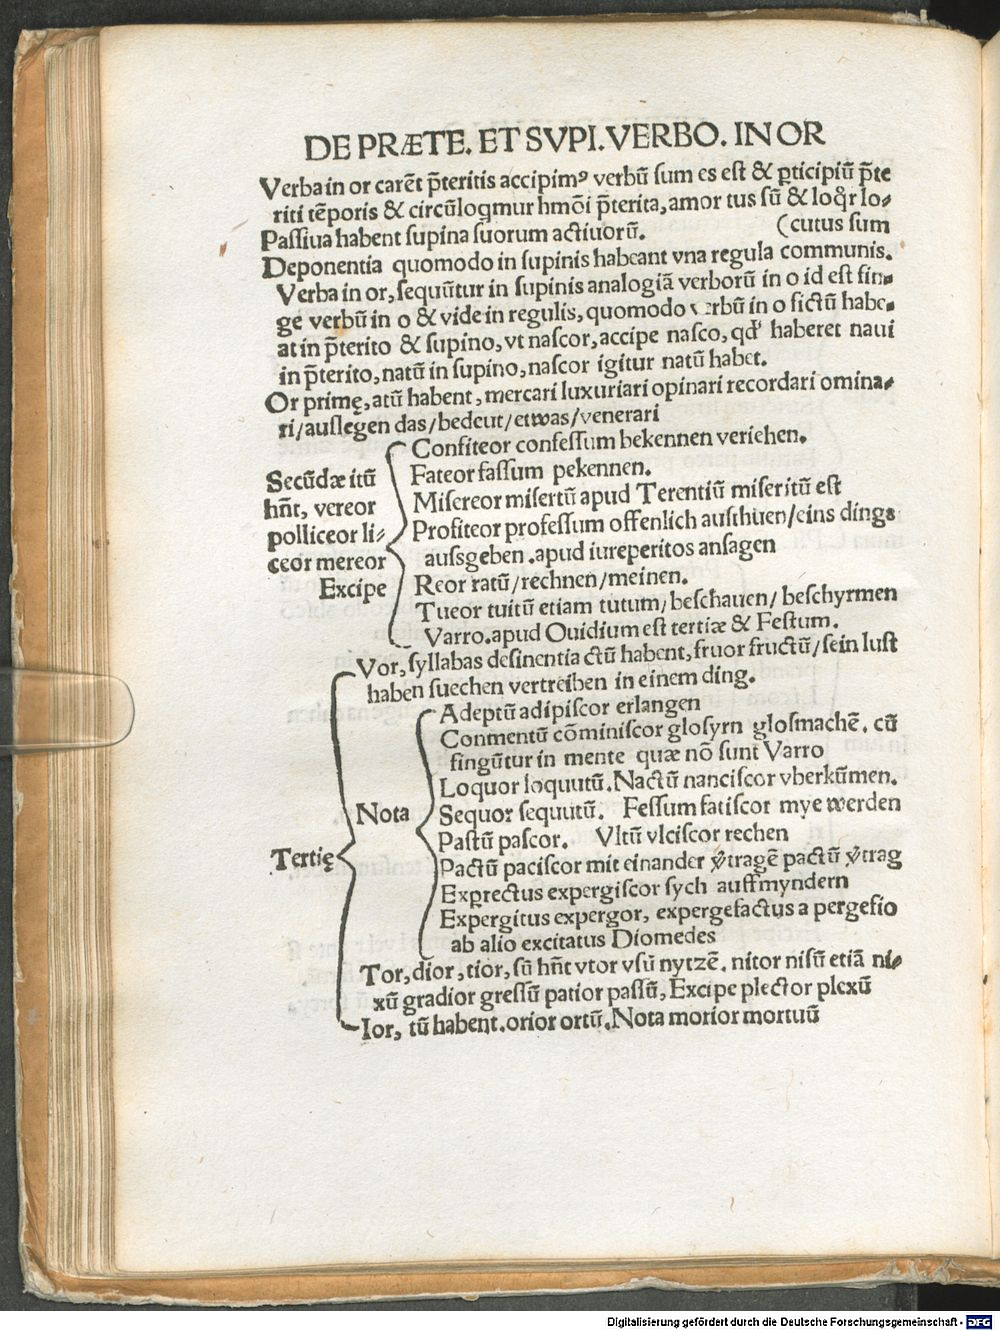 DE PRÆTE. ET SVPI. VERBO. IN OR
Verba in or carēt p̄teritis accipimꝰ verbū sum es est & ꝑticipiū p̄te
riti tēporis & circūloqmur hmōi p̄terita, amor tus sū & loqr lo⸗
Passiua habent supina suorum actiuorū. (cutus sum
Deponentia quomodo in supinis habeant vna regula communis.
Verba in or, sequūtur in supinis analogiā verborū in o id est fin⸗
ge verbū in o & vide in regulis, quomodo verbū in o fictū habe⸗
at in p̄terito & supino, vt nascor, accipe nasco, qd' haberet naui
in p̄terito, natū in supino, nascor igitur natū habet.
Or primę, atū habent, mercari luxuriari opinari recordari omina⸗
ri/auslegen das/bedeut/etwas/venerari
Secūdæ itū
hn̄t, vereor
polliceor li⸗
ceor mereor
Excipe
Confiteor confessum bekennen veriehen.
Fateor fassum pekennen.
Misereor misertū apud Terentiū miseritū est
Profiteor professum offenlich austhuen/eins dings
aussgeben .apud iureperitos ansagen
Reor ratū/rechnen/meinen.
Tueor tuitū etiam tutum/beschauen/beschyrmen
Varro.apud Ouidium est tertiæ & Festum.
Tertię
Vor, syllabas desinentia ctū habent, fruor fructū/sein lust
haben suechen vertreiben in einem ding.
Nota
Adeptū adipiscor erlangen
Conmentū cōminiscor glosyrn glosmachē. cū
fingūtur in mente quæ nō sunt Varro
Loquor loquutū. Nactū nanciscor vberkūmen.
Sequor sequutū. Fessum fatiscor mye werden
Pastū pascor. Vltū vlciscor rechen
Pactū paciscor mit einander v̓tragē pactū v̓trag
Exprectus expergiscor sych auffmyndern
Expergitus expergor, expergefactus a pergefio
ab alio excitatus Diomedes
Tor, dior, tior, sū hn̄t vtor vsū nytzē. nitor nisū etiā ni⸗
xū gradior gressū patior passū, Excipe plector plexū
Ior, tū habent. orior ortū. Nota morior mortuū
Digitalisierung gefördert durch die Deutsche Forschungsgemeinschaft - DFG